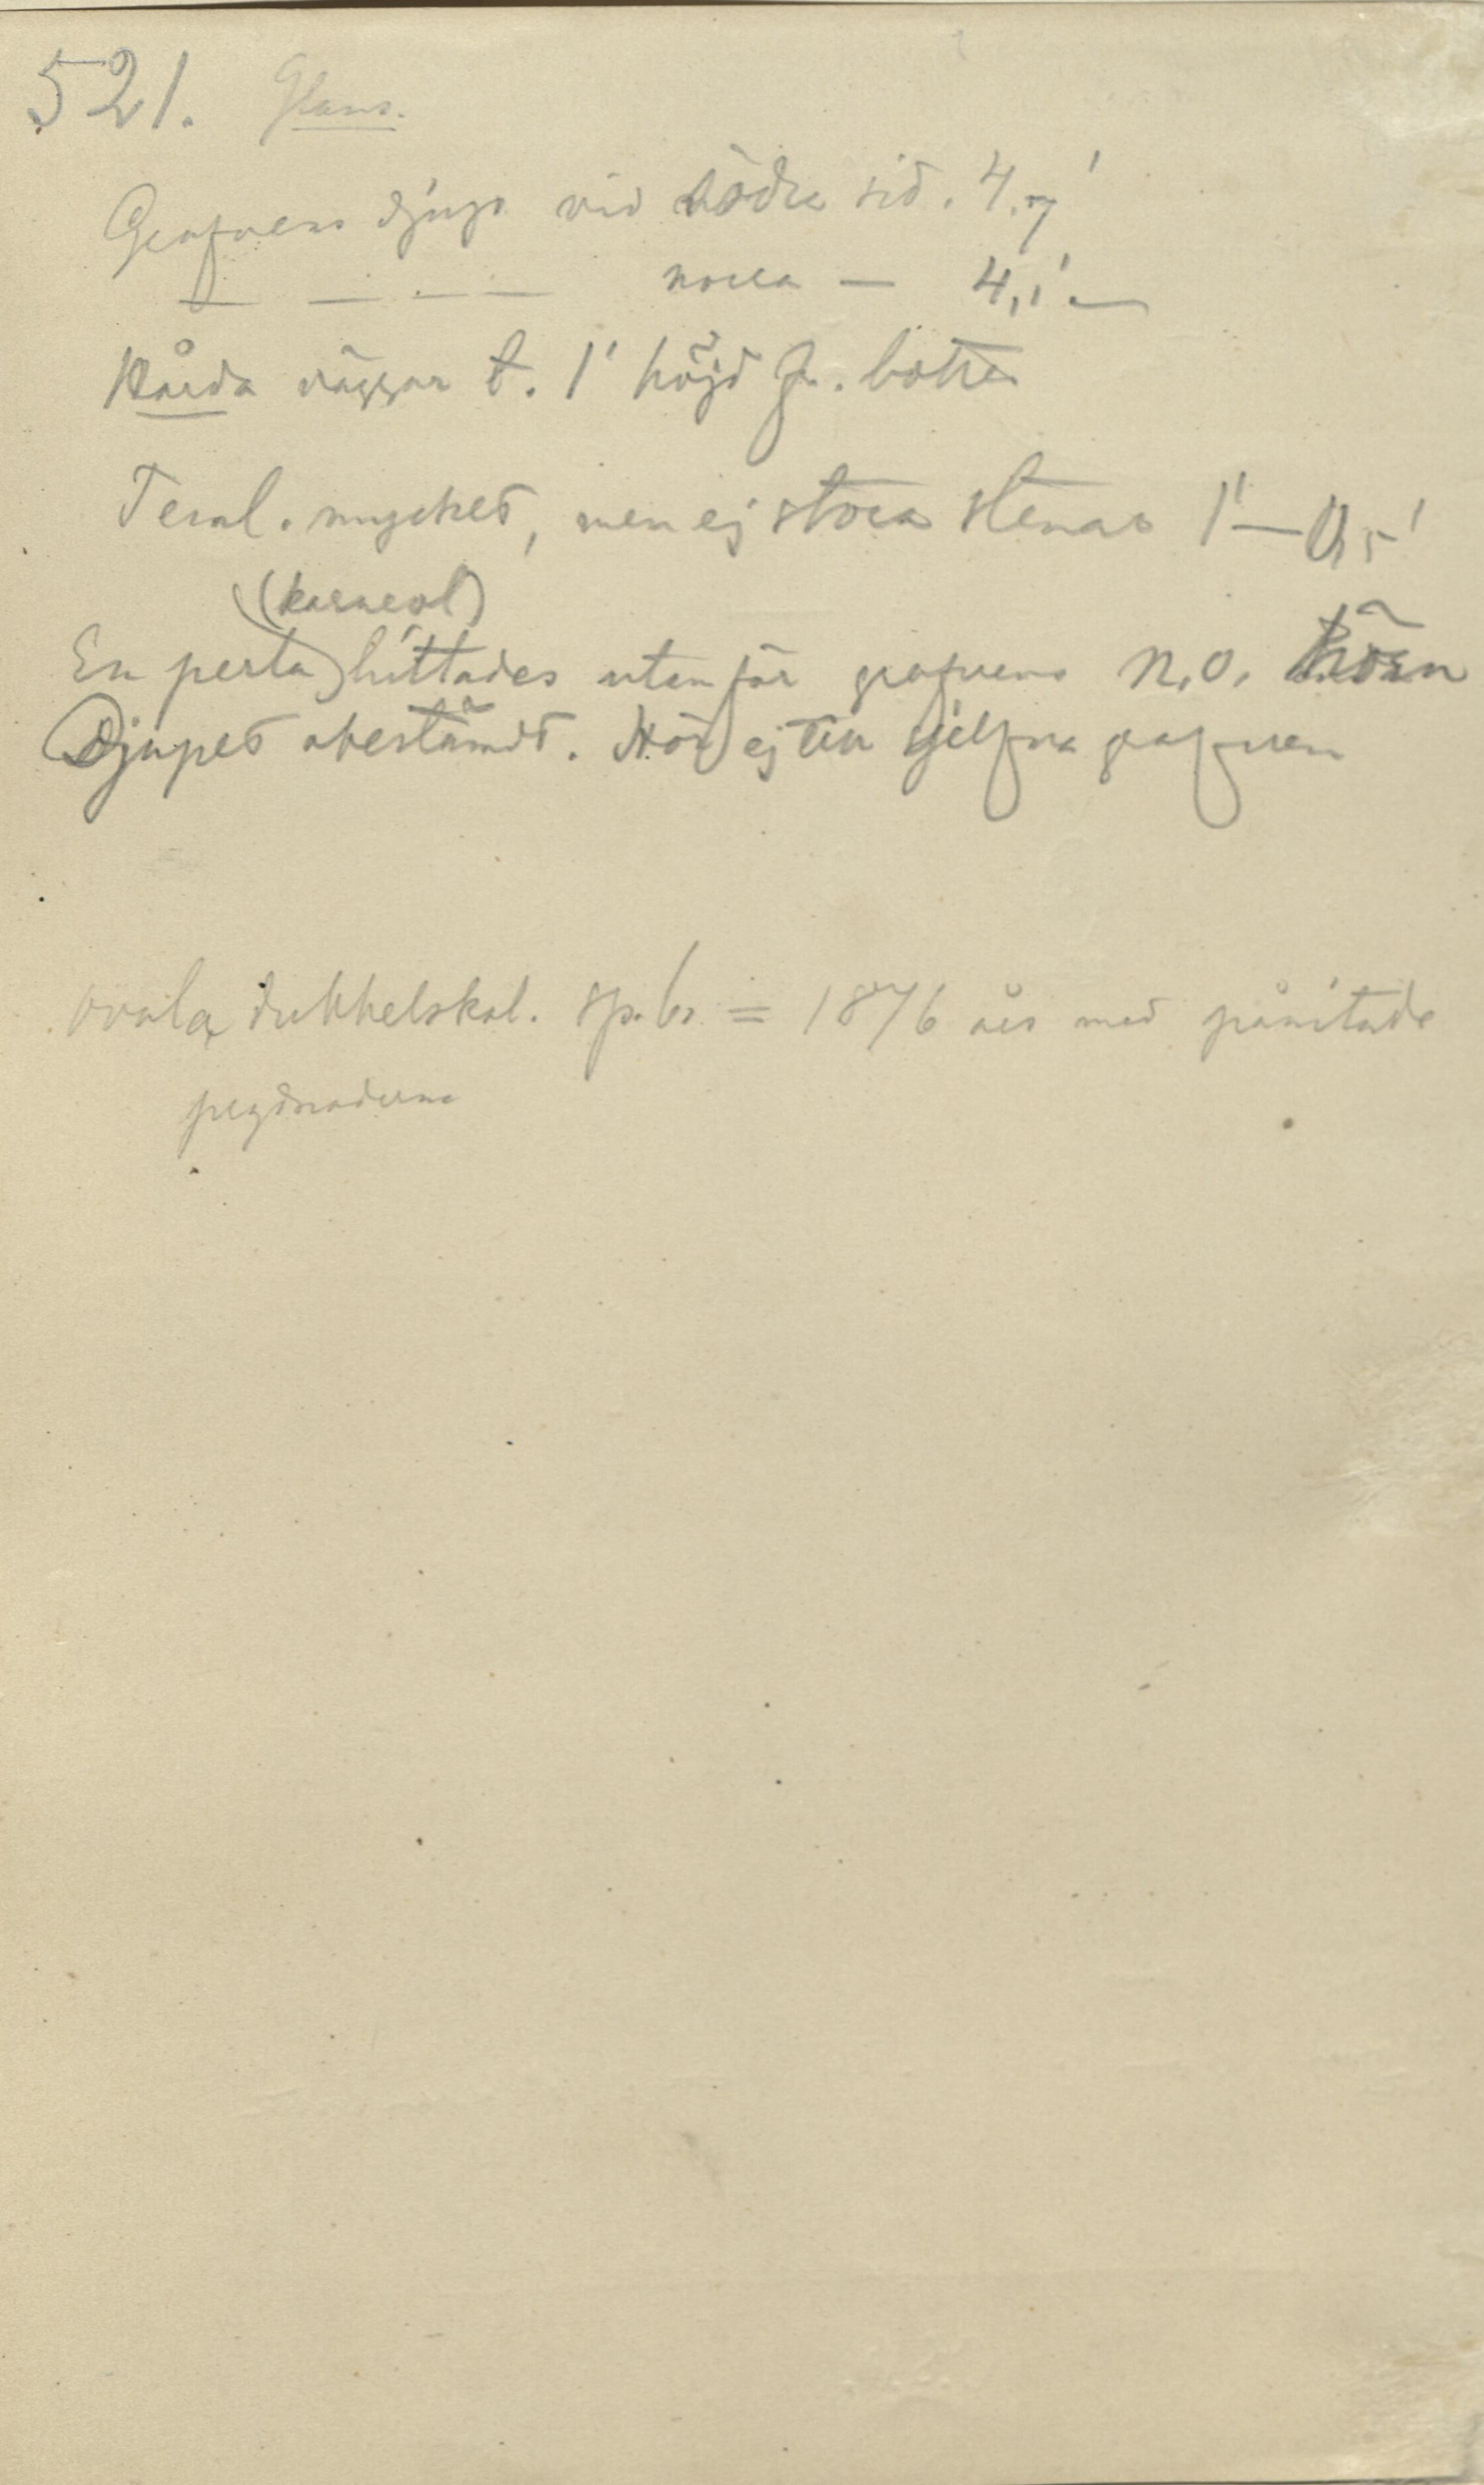 521. Glans.
Grafvens djup vid södra sid. 4.7'
— — — norra — 4,1' —
Hårda väggar t. 1' höjd fr. botten
Teml. mycket, men ej stora stenar 1'–0,5'
(karneol)
En perla hittades utanför grafvens N.O. hörn
Djupet obestämdt. Hör ej till sjelfva grafven
ovala dubbelskal. sp.b. = 1876 års med påritade